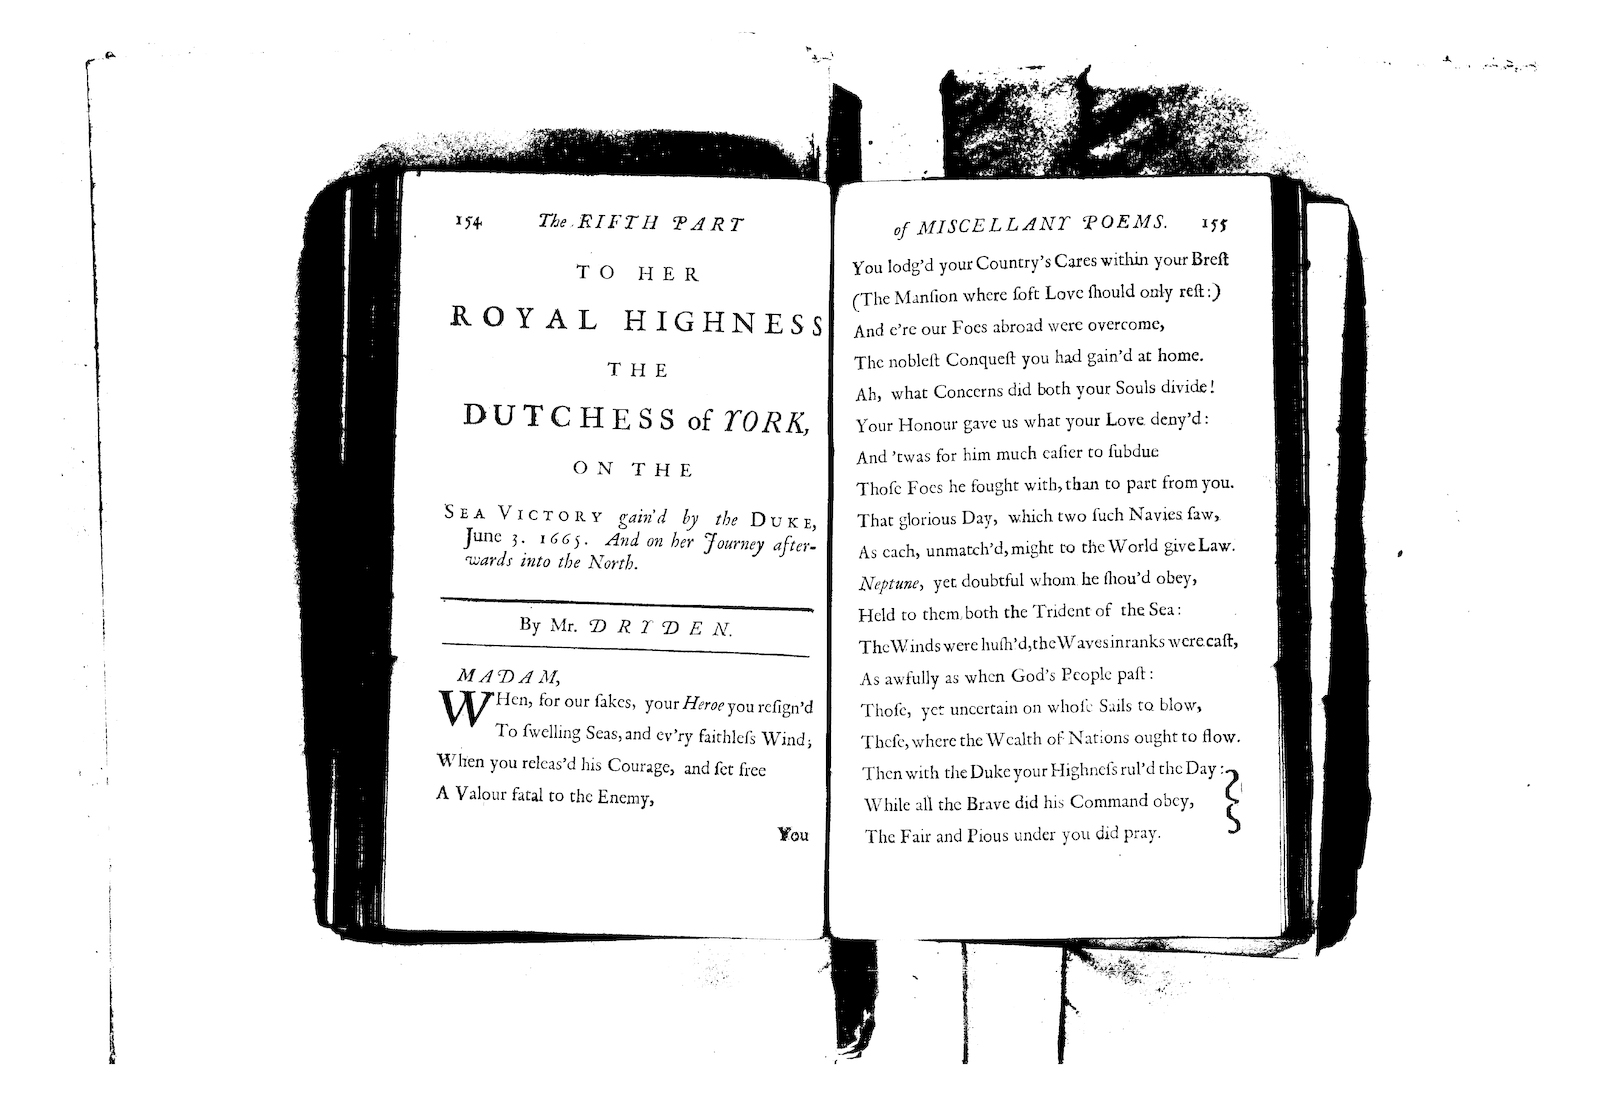 154 The FIFTH PART
TO HER
ROYAL HIGHNESS
THE
DUTCHESS of YORK,
ON THE
SEA VICTORY gain'd by the DUKE,
June 3. 1665. And on her Journey after-
wards into the North.
By Mr. DRYDEN.
MADAM,
WHen, for our ſakes, your Heroe you reſign'd
To ſwelling Seas, and ev'ry faithleſs Wind;
When you releas'd his Courage, and ſet free
A Valour fatal to the Enemy,
You
of MISCELLANY POEMS. 155
You lodg'd your Country's Cares within your Breſt
(The Manſion where ſoft Love ſhould only reſt:)
And e're our Foes abroad were overcome,
The nobleſt Conqueſt you had gain'd at home.
Ah, what Concerns did both your Souls divide!
Your Honour gave us what your Love deny'd:
And 'twas for him much eaſier to ſubdue
Thoſe Foes he fought with, than to part from you.
That glorious Day, which two ſuch Navies ſaw,
As each, unmatch'd, might to the World give Law.
Neptune, yet doubtful whom he ſhou'd obey,
Held to them both the Trident of the Sea:
The Winds were huſh'd, the Waves in ranks were caſt,
As awfully as when God's People paſt:
Thoſe, yet uncertain on whoſe Sails to blow,
Theſe, where the Wealth of Nations ought to flow.
Then with the Duke your Highneſs rul'd the Day:
While all the Brave did his Command obey,
The Fair and Pious under you did pray.